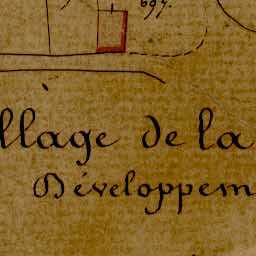 697.
llage de la
Développem